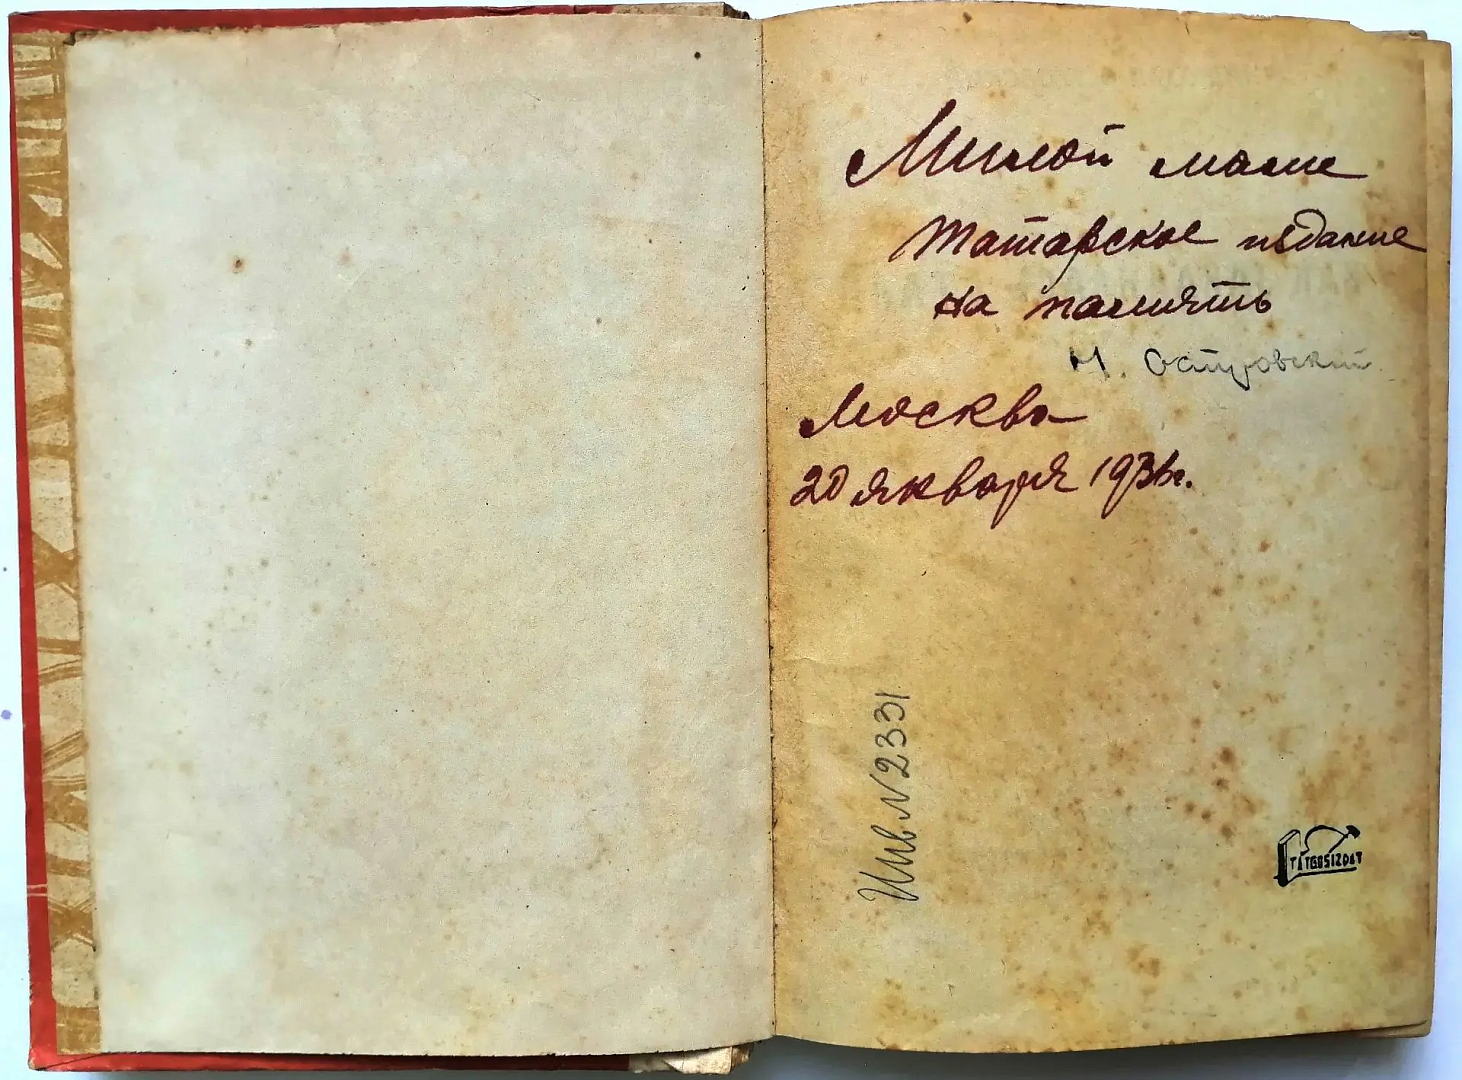 Милой маме
татарское издание
на память
Н. Островский
Москва
20 января 1936г.
Инв N2331
TATGOSIZDAT